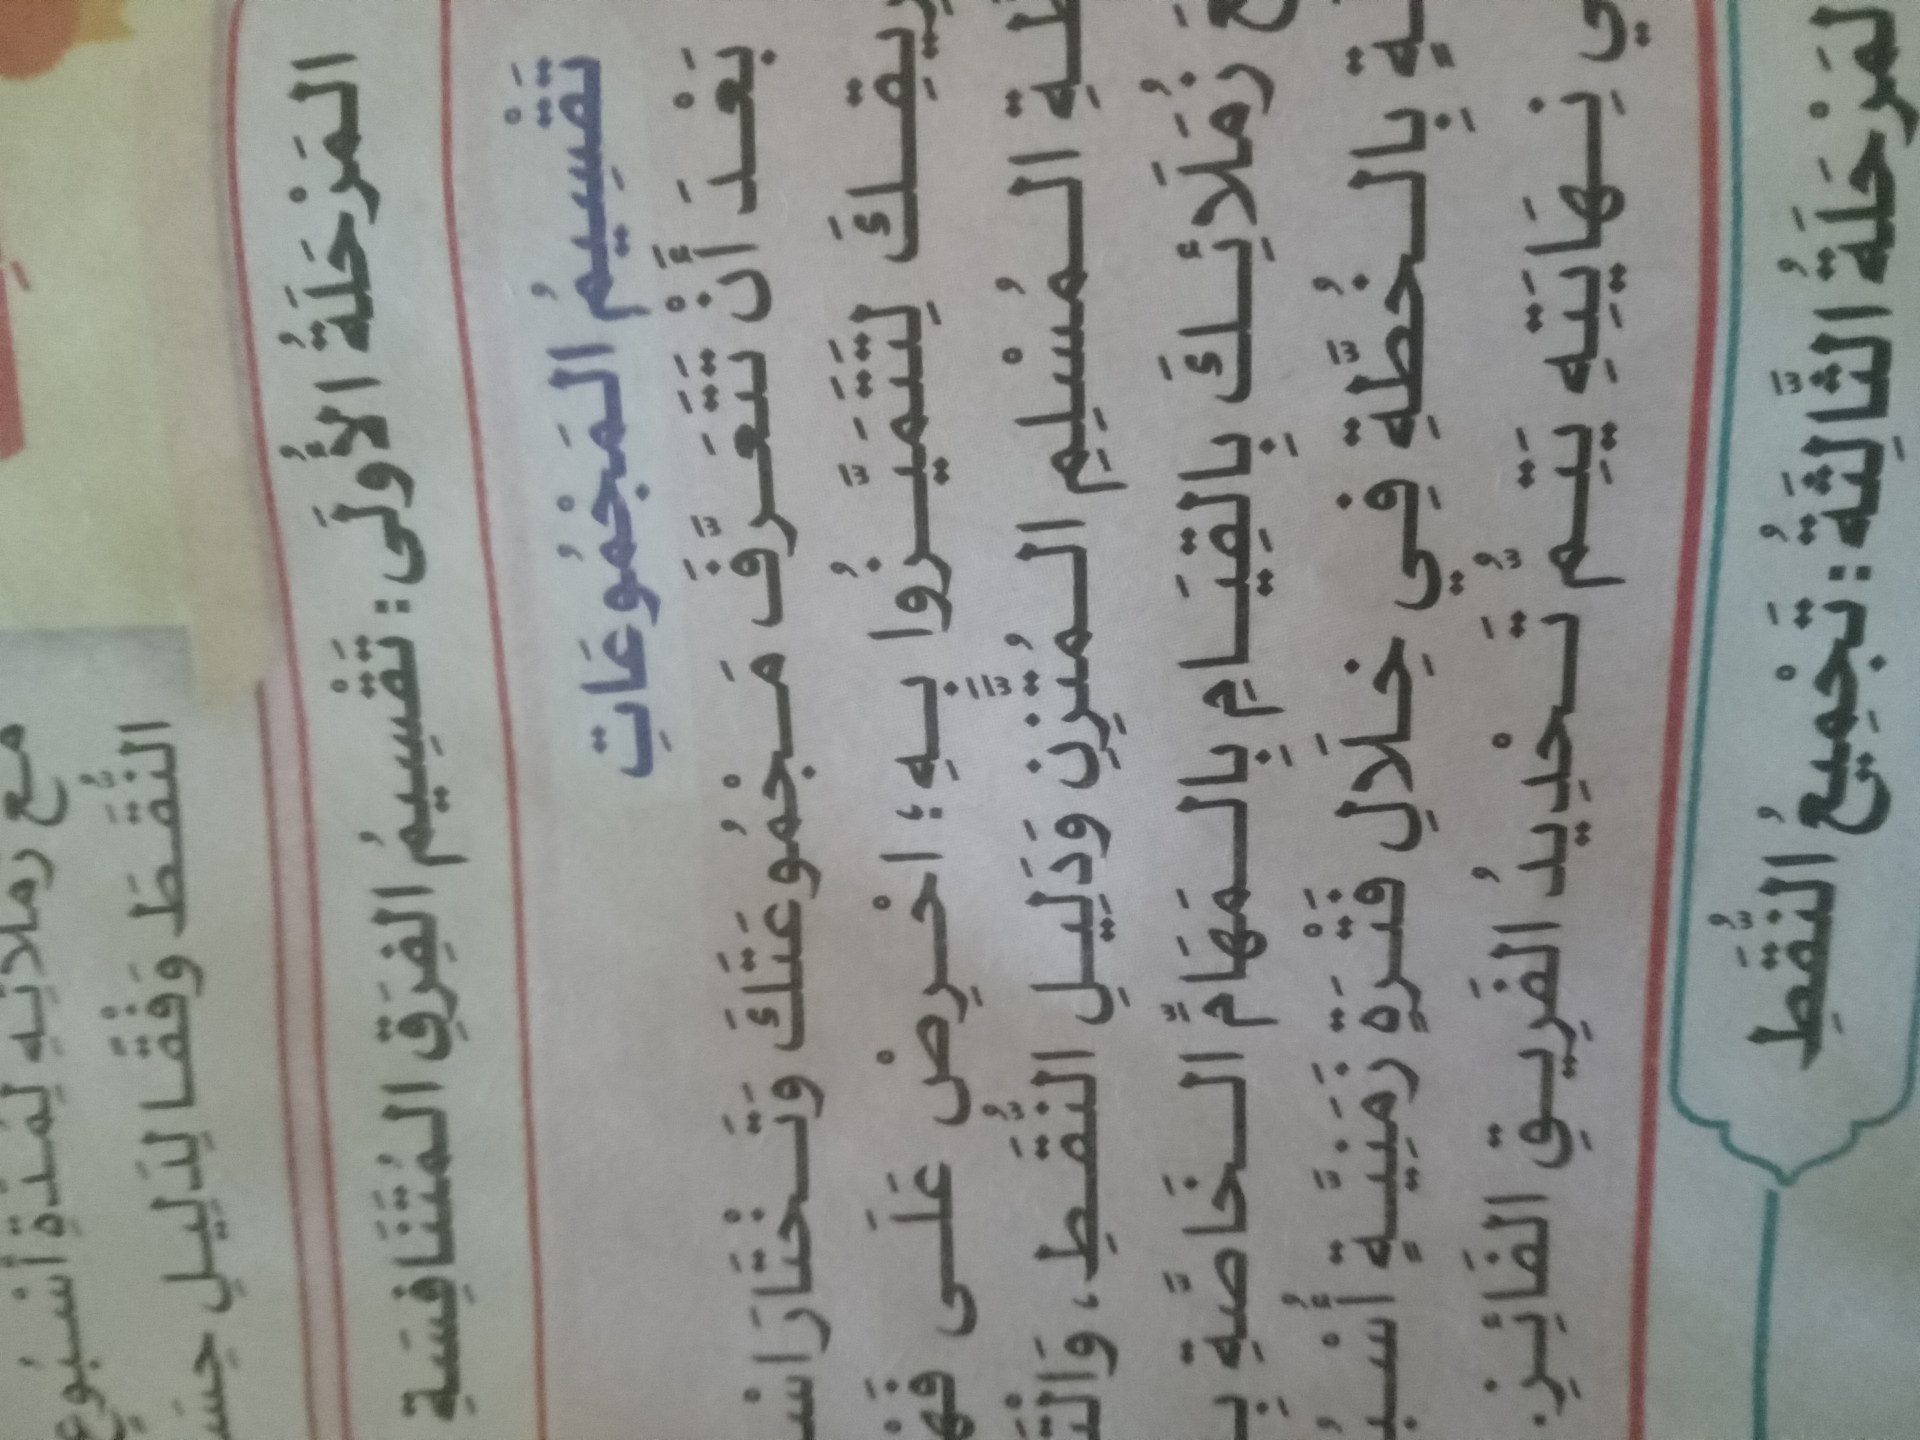 مع زملائه لمدة أسبوع
النُّقَطَ وَفْقًا لِدَلِيلِ
المَرْحَلَةُ الأُولَى: تَقْسِيمُ الفِرَقِ المُتَنَافِسَةِ
تَقْسِيمُ المَجْمُوعَاتِ
بَعْدَ أَنْ تَتَعَرَّفَ مَجْمُوعَتَكَ وَتَخْتَارَ
لِتَتَمَيَّزُوا بِهِ؛ احْرِصْ عَلَى
المُسْلِمِ المُتَّزِنِ وَدَلِيلِ النُّقَطِ،
زُمَلَائِكَ بِالقِيَامِ بِالمَهَامِّ الخَاصَّةِ
بِالخُطَّةِ فِي خِلَالِ فَتْرَةٍ زَمَنِيَّةٍ
نِهَايَتِهِ يَتِمُّ تَحْدِيدُ الفَرِيقِ الفَائِزِ.
المَرْحَلَةُ الثَّالِثَةُ: تَجْمِيعُ النُّقَطِ